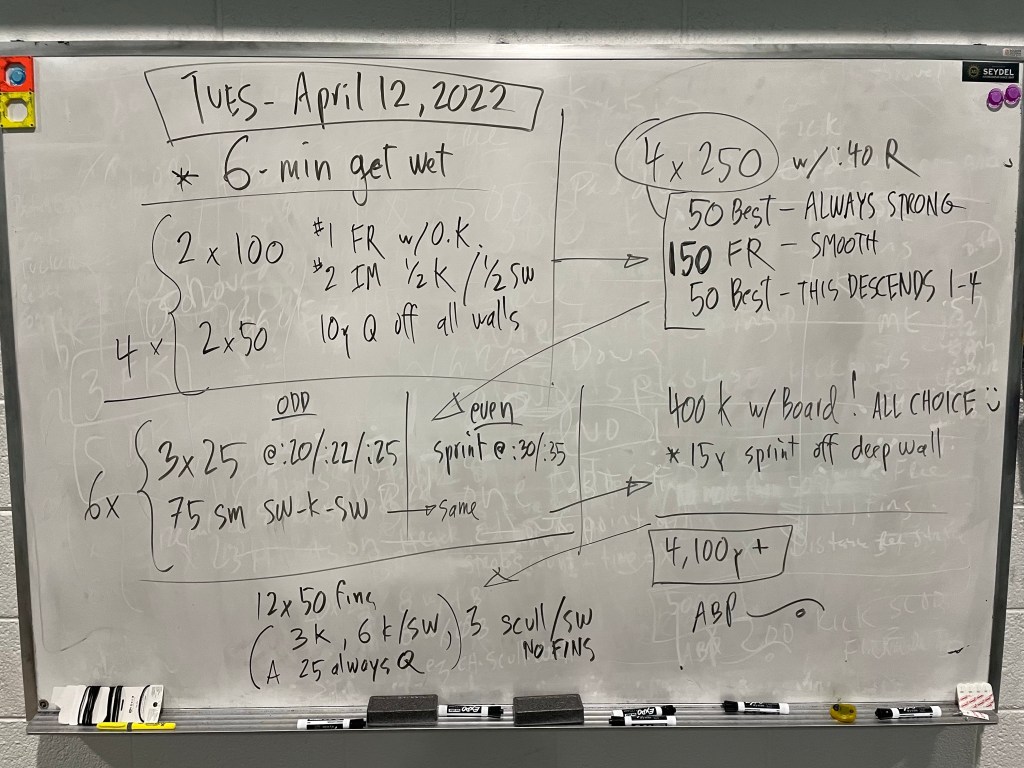 TUES - April 12, 2022
* 6-min get wet
4 x
2 x 100 #1 FR w/O.K.
#2 IM 1/2 K / 1/2 SW
2x50 10y Q off all walls
4 x 250 w/ :40 R
50 Best - ALWAYS STRONG
150 FR - SMOOTH
50 Best - THIS DESCENDS 1-4
6x
ODD
3x25 @:20/:22/:25
75 sm SW-K-SW
even
sprint @ :30/:35
same
400 K w/ Board! ALL CHOICE
* 15y sprint off deep wall
12x50 fins
(3K, 6 K/SW,) 3 scull/SW
NO FINS
A 25 always Q
4,100y +
ABP
SEYDEL
EXPO
EXPO